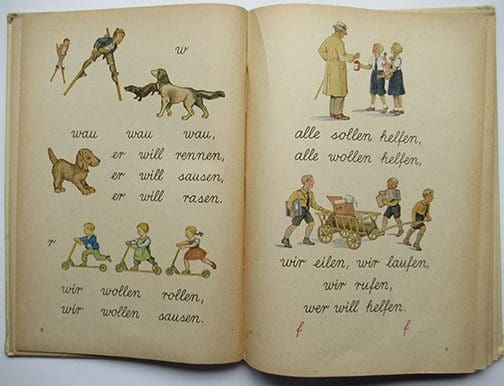 w
wau wau wau,
er will rennen,
er will sausen,
er will rasen.
r
wir wollen rollen,
wir wollen sausen.
alle sollen helfen,
alle wollen helfen,
wir eilen, wir laufen,
wir rufen,
wer will helfen.
f f